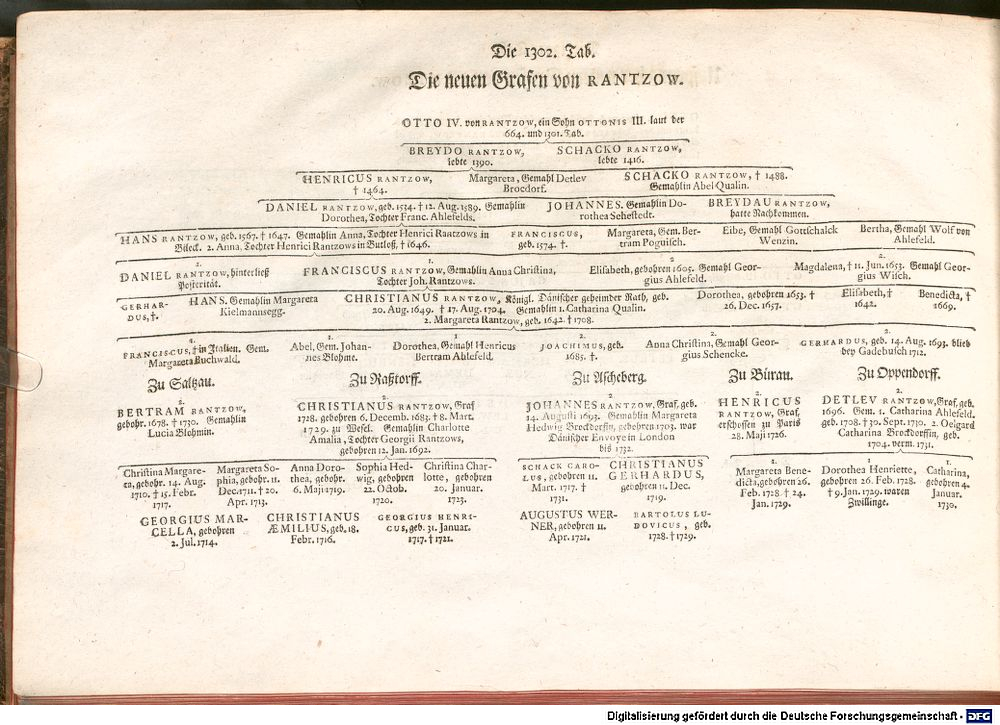 Die 1302. Tab.
Die neuen Grafen von RANTZOW.
OTTO IV. von RANTZOW, ein Sohn OTTONIS III. laut der
664. und 1301. Tab.
BREYDO RANTZOW,
lebte 1390.
SCHACKO RANTZOW,
lebte 1416.
HENRICUS RANTZOW,
† 1464.
Margareta, Gemahl Detlev
Brocdorf.
SCHACKO RANTZOW, † 1488.
Gemahlin Abel Qualin.
DANIEL RANTZOW, geb. 1534. † 12. Aug. 1589. Gemahlin
Dorothea, Tochter Franc. Ahlefelds.
JOHANNES. Gemahlin Do-
rothea Sehestedt.
BREYDAU RANTZOW,
hatte Nachkommen.
HANS RANTZOW, geb. 1567. † 1647. Gemahlin Anna, Tochter Henrici Rantzows in
Böleck. 2. Anna, Tochter Henrici Rantzows in Butloß, † 1646.
FRANCISCUS,
geb. 1574. †.
Margareta, Gem. Ber-
tram Poguisch.
Eibe, Gemahl Gottschalck
Wenzin.
Bertha, Gemahl Wolf von
Ahlefeld.
2.
DANIEL RANTZOW, hinterließ
Posterität.
1.
FRANCISCUS RANTZOW, Gemahlin Anna Christina,
Tochter Joh. Rantzows.
2
Elisabeth, gebohren 1605. Gemahl Geor-
gius Ahlefeld.
2.
Magdalena, † 11. Jun. 1653. Gemahl Geor-
gius Wisch.
GERHAR-
DUS, †.
HANS. Gemahlin Margareta
Kielmannsegg.
CHRISTIANUS RANTZOW, Königl. Dänischer geheimder Rath, geb.
20. Aug. 1649. † 17. Aug. 1704. Gemahlin 1. Catharina Qualin.
2. Margareta Rantzow, geb. 1642. † 1708.
Dorothea, gebohren 1653. †
26. Dec. 1657.
Elisabeth, †
1642.
Benedicta, †
1669.
1.
FRANCISCUS, † in Italien. Gem.
Margareta Buchwald.
2.
Abel, Gem. Johan-
nes Blohme.
1
Dorothea, Gemahl Henricus
Bertram Ahlefeld.
2.
JOACHIMUS, geb.
1685. †.
2.
Anna Christina, Gemahl Geor-
gius Schencke.
2.
GERHARDUS, geb. 14. Aug. 1693. blieb
bey Gadebusch 1712.
Zu Saltzau.
Zu Raßtorff.
Zu Ascheberg.
Zu Bürau.
Zu Oppendorff.
2.
BERTRAM RANTZOW,
gebohr. 1678. † 1730. Gemahlin
Lucia Blohmin.
2.
CHRISTIANUS RANTZOW, Graf
1728. gebohren 6. Decemb. 1683. † 8. Mart.
1729. zu Wesel. Gemahlin Charlotte
Amalia, Tochter Georgii Rantzows,
gebohren 12. Jan. 1692.
2.
JOHANNES RANTZOW, Graf, geb.
14. Augusti 1693. Gemahlin Margareta
Hedwig Brockdorfin, gebohren 1703. war
Dänischer Envoye in London
bis 1732.
2.
HENRICUS
RANTZOW, Graf,
erschossen zu Paris
28. Maji 1726.
2.
DETLEV RANTZOW, Graf, geb.
1696. Gem. 1. Catharina Ahlefeld.
geb. 1708. † 30. Sept. 1730. 2. Oelgard
Catharina Brockdorffin, geb.
1704. verm. 1731.
Christina Margare-
ta, gebohr. 14. Aug.
1710. † 15. Febr.
1717.
Margareta So-
phia, gebohr. 11.
Dec. 1711. † 20.
Apr. 1713.
Anna Doro-
thea, gebohr.
6. Maji 1719.
Sophia Hed-
wig, gebohren
22. Octob.
1720.
Christina Char-
lotte, gebohren
20. Januar.
1723.
SCHACK CARO-
LUS, gebohren 11.
Mart. 1717. †
1731.
CHRISTIANUS
GERHARDUS,
gebohren 11. Dec.
1719.
1.
Margareta Bene-
dicta, gebohren 26.
Feb. 1728. † 24.
Jan. 1729.
1.
Dorothea Henriette,
gebohren 26. Feb. 1728.
† 9. Jan. 1729. waren
Zwillinge.
1.
Catharina,
gebohren 4.
Januar.
1730.
GEORGIUS MAR-
CELLA, gebohren
2. Jul. 1714.
CHRISTIANUS
ÆMILIUS, geb. 18.
Febr. 1716.
GEORGIUS HENRI-
CUS, geb. 31. Januar.
1717. † 1721.
AUGUSTUS WER-
NER, gebohren 11.
Apr. 1721.
BARTOLUS LU-
DOVICUS, geb.
1728. † 1729.
Digitalisierung gefördert durch die Deutsche Forschungsgemeinschaft - DFG